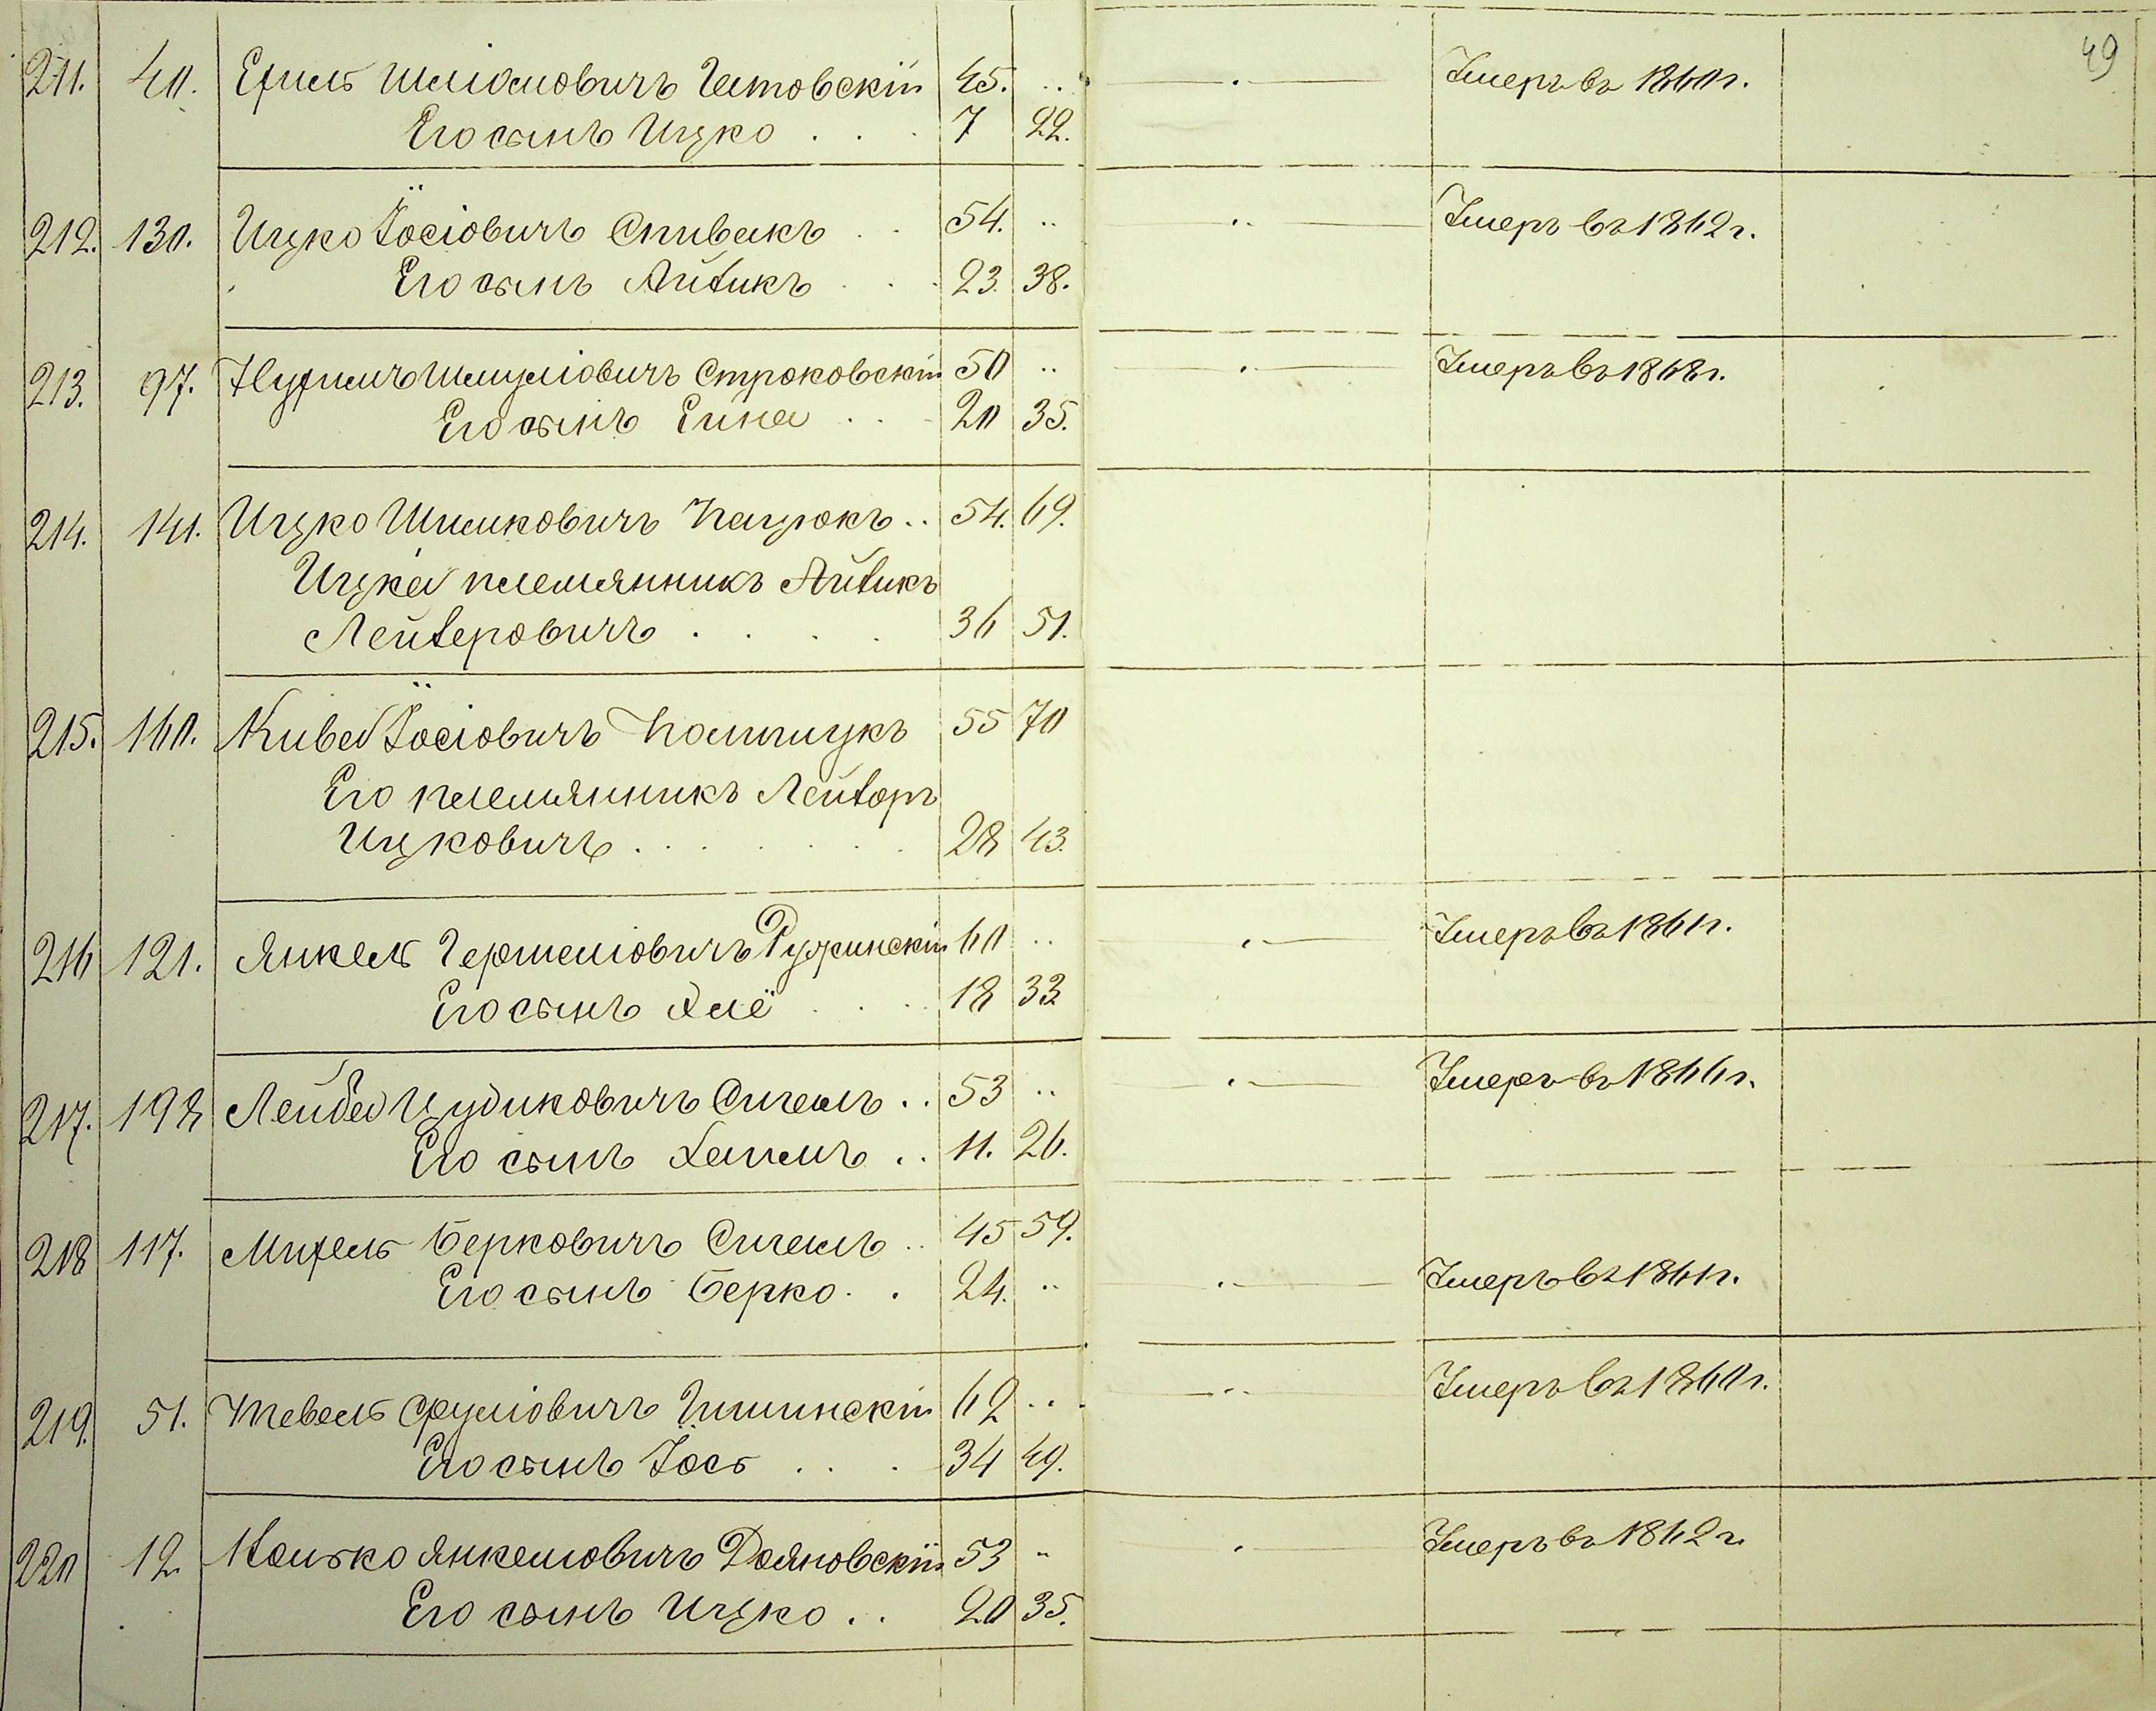 49
211. 40. Ехиль Шліомовичъ Гитовскій 45. .. Умеръ въ 1860 г.
Его сынъ Ицко . . . 7 22.
212. 130. Ицко Іосіовичъ Спивакъ . . 54. .. Умеръ въ 1862 г.
Его сынъ Айзикъ . . . 23. 38.
213. 97. Нухимъ Шмуліовичъ Строковскій 50 .. Умеръ въ 1868 г.
Его сынъ Еина . . . 20 35.
214. 141. Ицко Шимковичъ Кацюкъ .. 54. 69.
Ицка племянникъ Айзикъ
Лейзеровичъ . . . . 36 51.
215. 160. Кива Іосіовичъ 55 70
Его племянникъ Лейзоръ
Ицковичъ . . . . . . . 28 43.
216 121. Янкель Гершеліовичъ Ружинскій 60 .. Умеръ въ 1861 г.
Его сынъ . . . 18 33
217. 198 Лейба Цудиковичъ Сигалъ .. 53 .. Умеръ въ 1866 г.
Его сынъ Хаимъ .. 11. 26.
218 117. Михель Берковичъ Сигалъ .. 45 59.
Его сынъ Берко . . 24. .. Умеръ въ 1861 г.
219. 51. Тевель Сруліовичъ 62 .. Умеръ въ 1860 г.
Его сынъ Іось . . . 34 49.
220 12. Янкелиовичъ Дояновскій 53 .. Умеръ въ 1862 г.
Его сынъ Ицко . . 20 35.